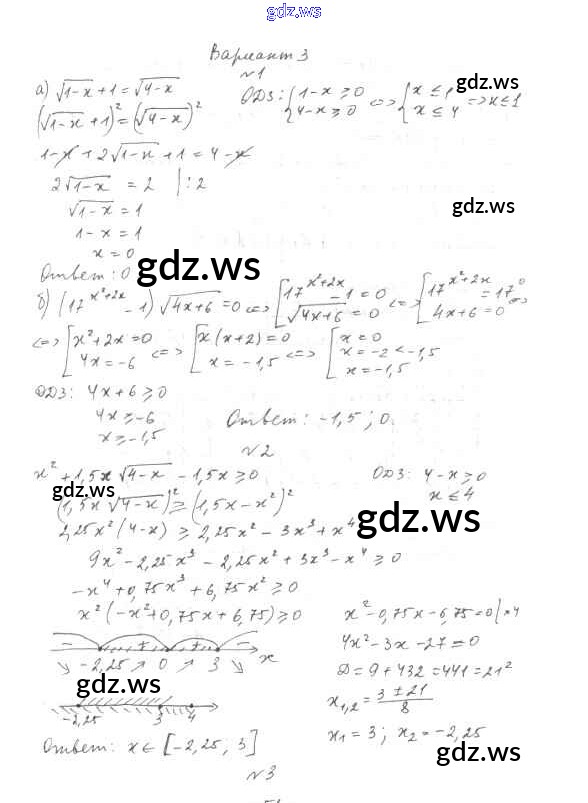 gdz.ws
Вариант 3
№1
а) √(1-x) + 1 = √(4-x)    ОДЗ: {1-x ≥ 0, 4-x ≥ 0 <=> {x ≤ 1, x ≤ 4 => x ≤ 1
gdz.ws
(√(1-x) + 1)² = (√(4-x))²
1-x + 2√(1-x) + 1 = 4-x
2√(1-x) = 2 | : 2
√(1-x) = 1
gdz.ws
1-x = 1
x = 0
Ответ: 0
gdz.ws
б) (17^(x²+2x) - 1) √(4x+6) = 0 <=> [17^(x²+2x) - 1 = 0, √(4x+6) = 0 <=> [17^(x²+2x) = 17⁰, 4x+6 = 0 <=>
<=> [x²+2x = 0, 4x = -6 <=> [x(x+2) = 0, x = -1,5 <=> [x = 0, x = -2 < -1,5, x = -1,5
ОДЗ: 4x+6 ≥ 0
4x ≥ -6
x ≥ -1,5
Ответ: -1,5; 0.
№2
x² + 1,5x √(4-x) - 1,5x ≥ 0    ОДЗ: 4-x ≥ 0
x ≤ 4
gdz.ws
(1,5x √(4-x))² ≥ (1,5x - x²)²
gdz.ws
2,25x² (4-x) ≥ 2,25x² - 3x³ + x⁴
9x² - 2,25x³ - 2,25x² + 3x³ - x⁴ ≥ 0
-x⁴ + 0,75x³ + 6,75x² ≥ 0
x² (-x² + 0,75x + 6,75) ≥ 0    x² - 0,75x - 6,75 = 0 | ·4
4x² - 3x - 27 = 0
- + + -
-2,25 0 3 x
D = 9 + 432 = 441 = 21²
gdz.ws
x₁,₂ = (3 ± 21)/8
-2,25 3 4
x₁ = 3; x₂ = -2,25
Ответ: x ∈ [-2,25; 3]
gdz.ws
№3